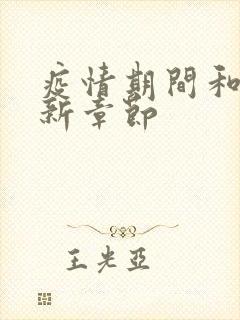 疫情期間和
新章節
王光亞